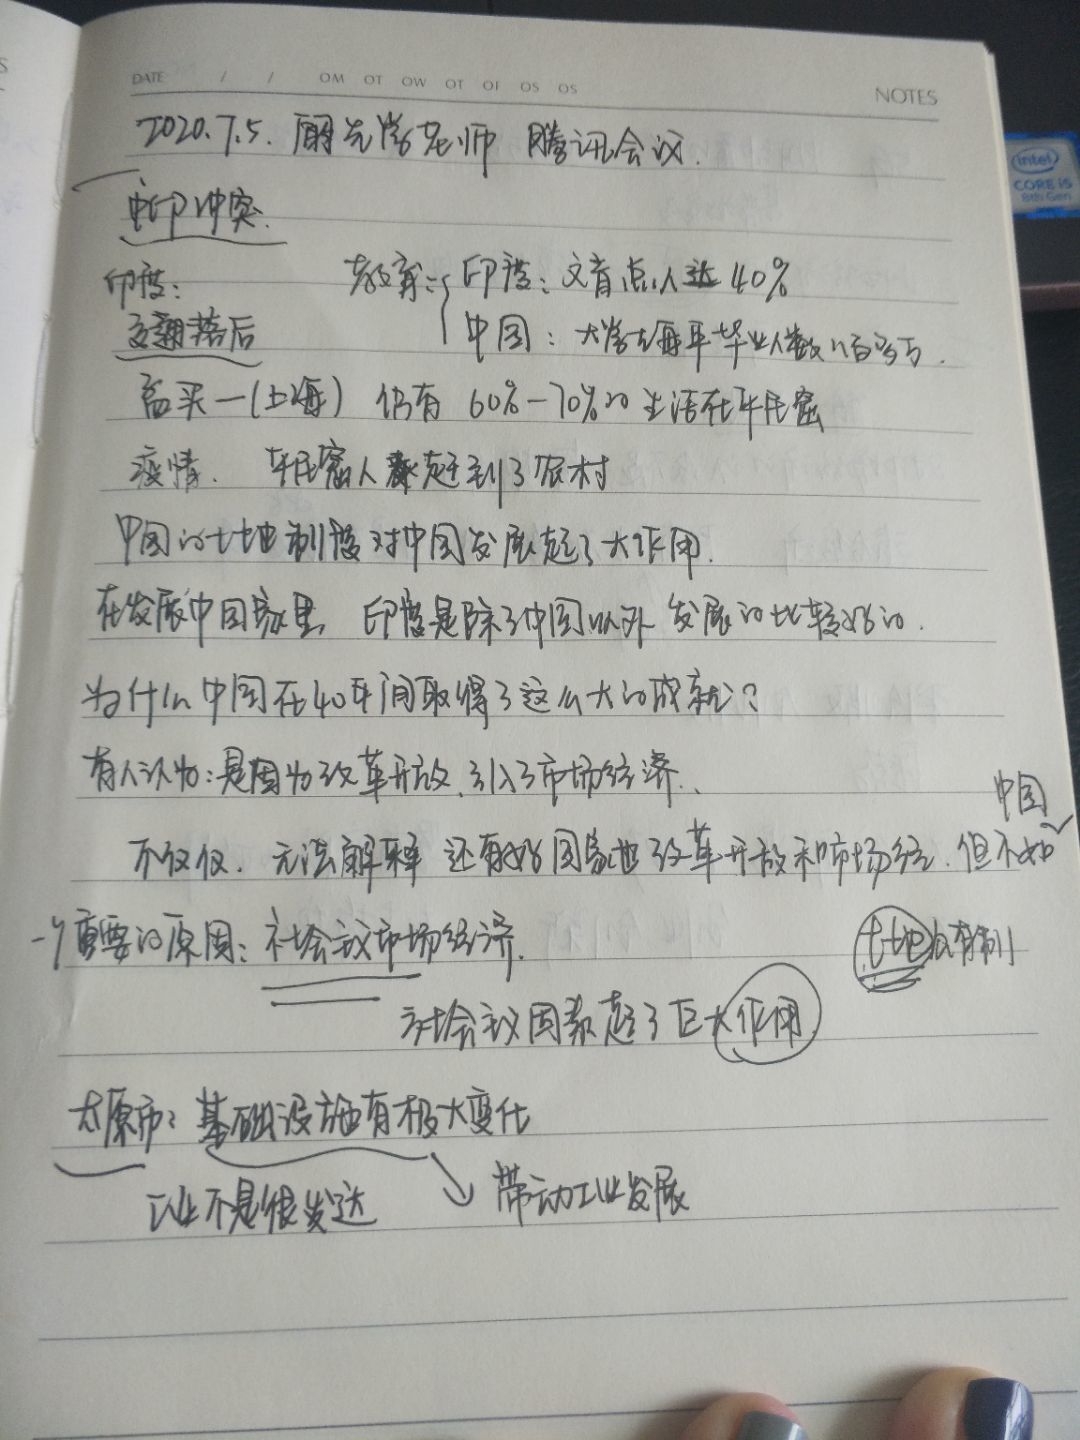 DATE / / OM OT OW OT OF OS OS
NOTES
2020.7.5. 老师 腾讯会议.
intel
CORE i5
8th Gen
中印冲突.
印度: 教育: 印度: 文盲 人达40%
落后 中国: 大学生每年毕业人数 百多万.
孟买—(上海) 仍有 60%-70%的生活在平民窟
疫情. 平民窟人 赶到了农村
中国的土地制度对中国发展起了大作用.
在发展中国家里 印度是除了中国以外 发展的比较好的.
为什么中国在40年间取得了这么大的成就?
有人认为: 是因为改革开放、引入了市场经济.
中国
不仅仅. 无法解释 还有好 国家也改革开放和市场经. 但不如
一个重要的原因: 社会主义市场经济. 土地 有制
社会主义因素起了巨大作用
太原市: 基础设施有极大变化
工业不是很发达 带动工业发展